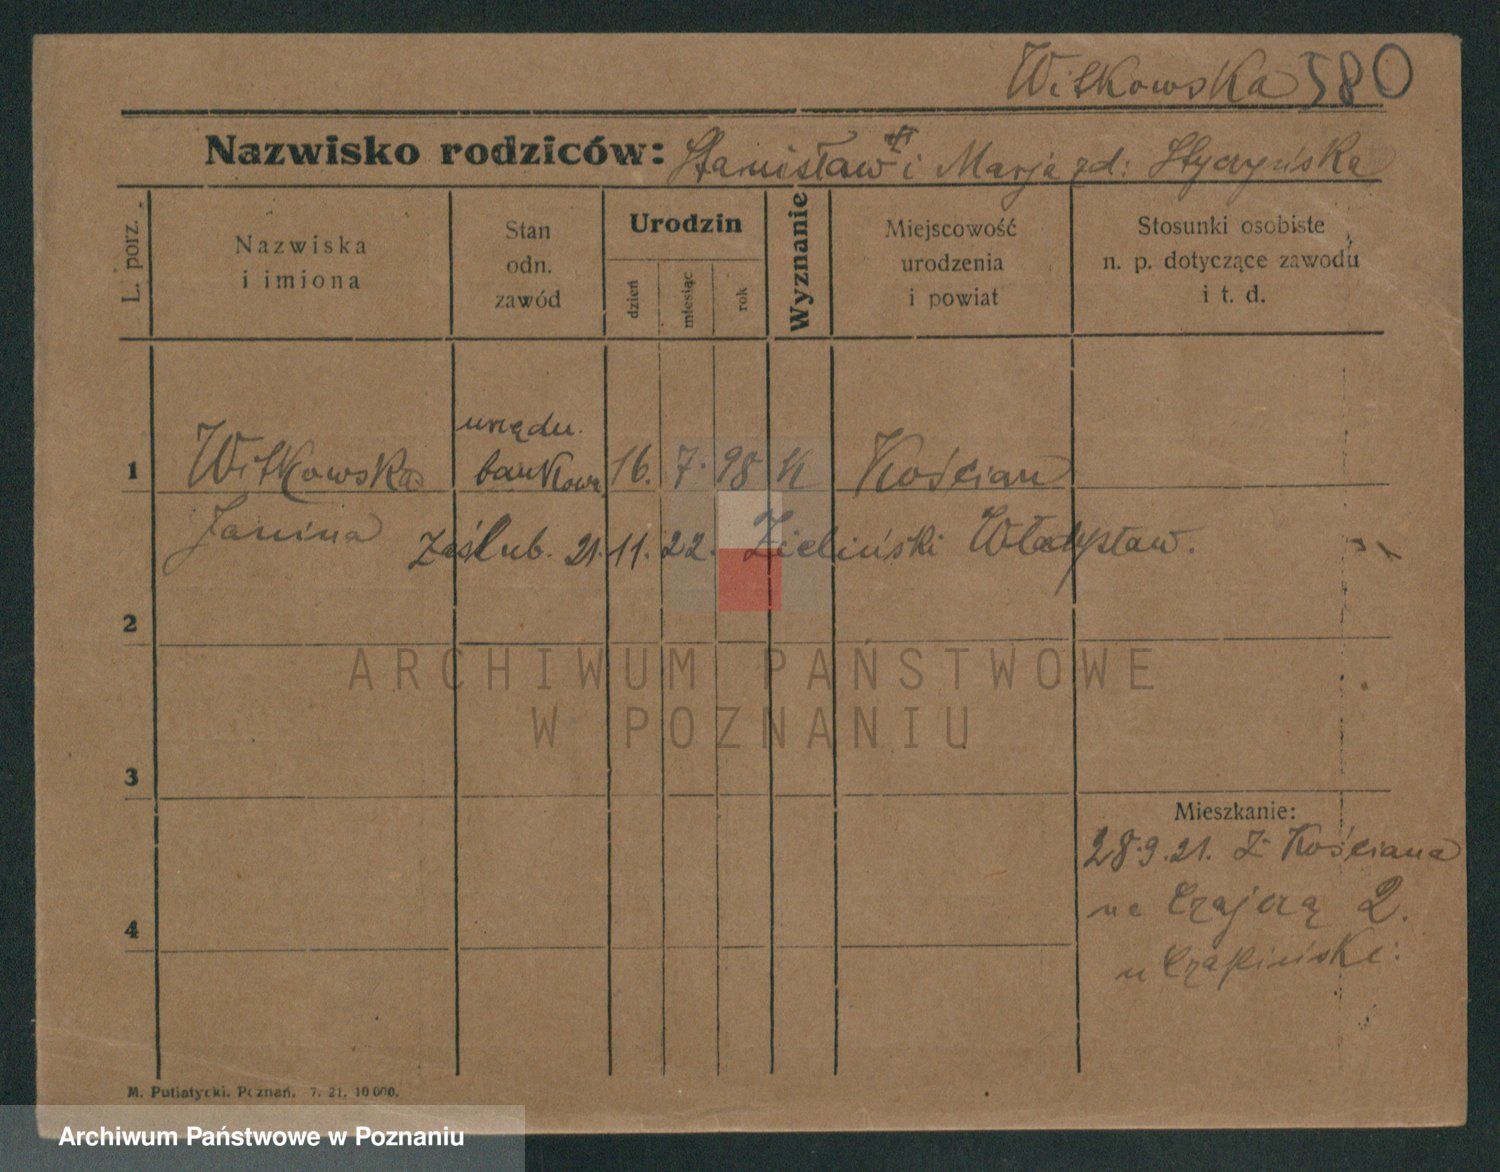 Witkowska 580
Nazwisko rodziców: Stanisław i Marja zd: Styczyńska
L. porz.
Nazwiska
i imiona
Stan
odn.
zawód
Urodzin
dzień
miesiąc
rok
Wyznanie
Miejscowość
urodzenia
i powiat
Stosunki osobiste
n. p. dotyczące zawodu
i t. d.
urzędn.
1 Witkowska bankowa 16. 7. 98 K Kościan
Janina Zaślub. 21. 11. 22. Zieliński Władysław.
2
ARCHIWUM PAŃSTWOWE
W POZNANIU
3
Mieszkanie:
28.9.21. Z Kościana
na Czajczą 2.
4
u Czapiński:
M. Putiatycki. Poznań. 7. 21. 10 000.
Archiwum Państwowe w Poznaniu